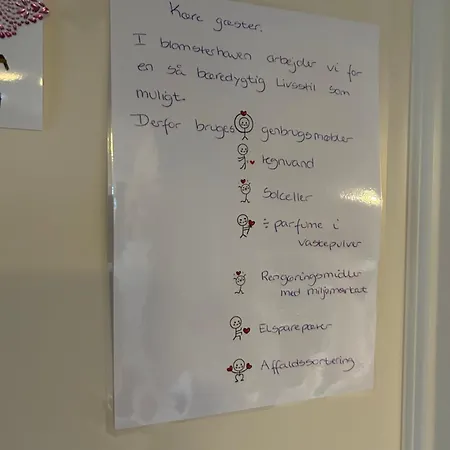 Kære gæster.
I blomsterhaven arbejder vi for
en så bæredygtig Livsstil som
muligt.
Derfor bruges genbrugsmøbler
regnvand
Solceller
÷ parfume i
vaskepulver
Rengøringsmidler
med miljømærket
Elsparepærer
Affaldssortering